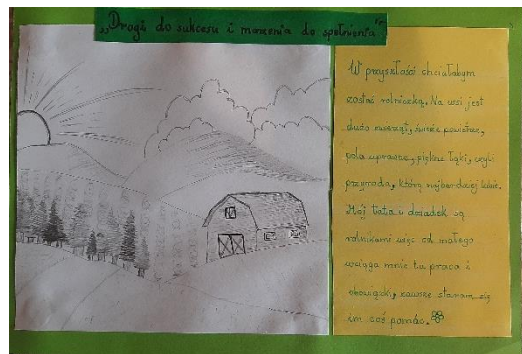 „Drogi do sukcesu i marzenia do spełnienia"
W przyszłości chciałabym
zostać rolniczką. Na wsi jest
dużo zwierząt, świeże powietrze,
pola uprawne, piękne łąki, czyli
przyroda, którą najbardziej lubię.
Mój tata i dziadek są
rolnikami więc od małego
wciąga mnie ta praca i
obowiązki, zawsze staram się
im coś pomóc.